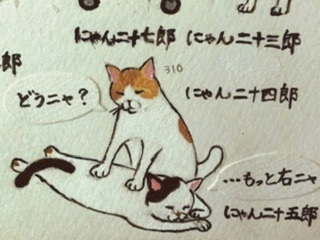 にゃん二十七郎
にゃん二十三郎
郎
310
にゃん二十四郎
どうニャ？
…もっと右ニャ
にゃん二十五郎